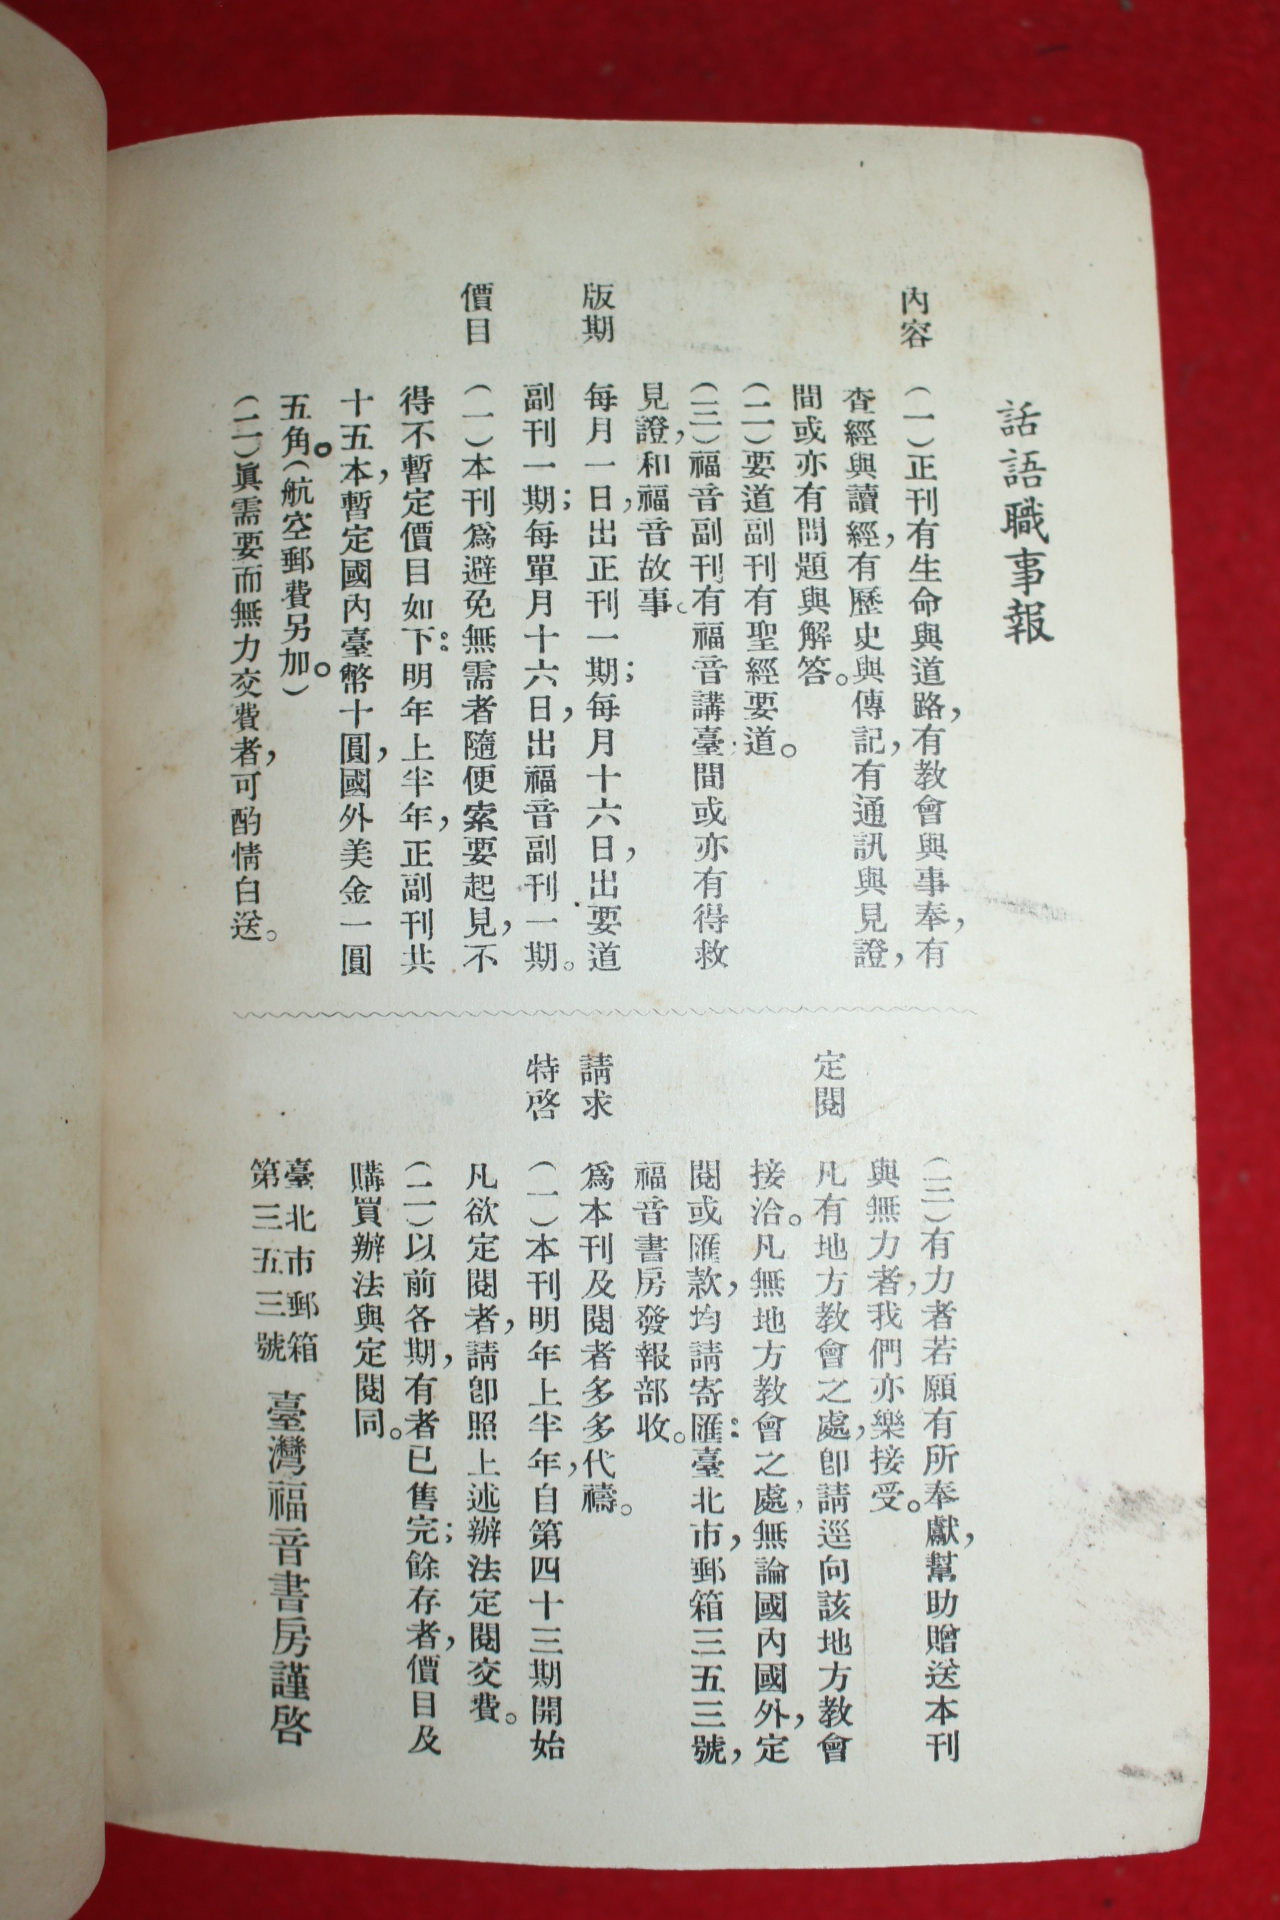 話語職事報
內容
(一)正刊有生命與道路，有教會與事奉，有
查經與讀經，有歷史與傳記，有通訊與見證，
間或亦有問題與解答。
(二)要道副刊有聖經要道。
(三)福音副刊有福音講臺間或亦有得救
見證，和福音故事。
版期
每月一日，出正刊一期；每月十六日，出要道
副刊一期；每單月十六日，出福音副刊一期。
價目
(一)本刊爲避免無需者隨便索要起見，不
得不暫定價目如下：明年上半年，正副刊共
十五本，暫定國內臺幣十圓，國外美金一圓
五角。(航空郵費另加。)
(二)眞需要而無力交費者，可酌情白送。
(三)有力者若願有所奉獻，幫助贈送本刊
與無力者，我們亦樂接受。
定閱
凡有地方教會之處，卽請逕向該地方教會
接洽。凡無地方教會之處，無論國內國外，定
閱或匯款，均請寄匯：臺北市，郵箱三五三號，
福音書房發報部收。
請求
爲本刊及閱者多多代禱。
特啓
(一)本刊明年上半年，自第四十三期開始
凡欲定閱者，請卽照上述辦法定閱交費。
(二)以前各期，有者已售完；餘存者，價目及
購買辦法與定閱同。
臺北市郵箱
第三五三號
臺灣福音書房謹啓